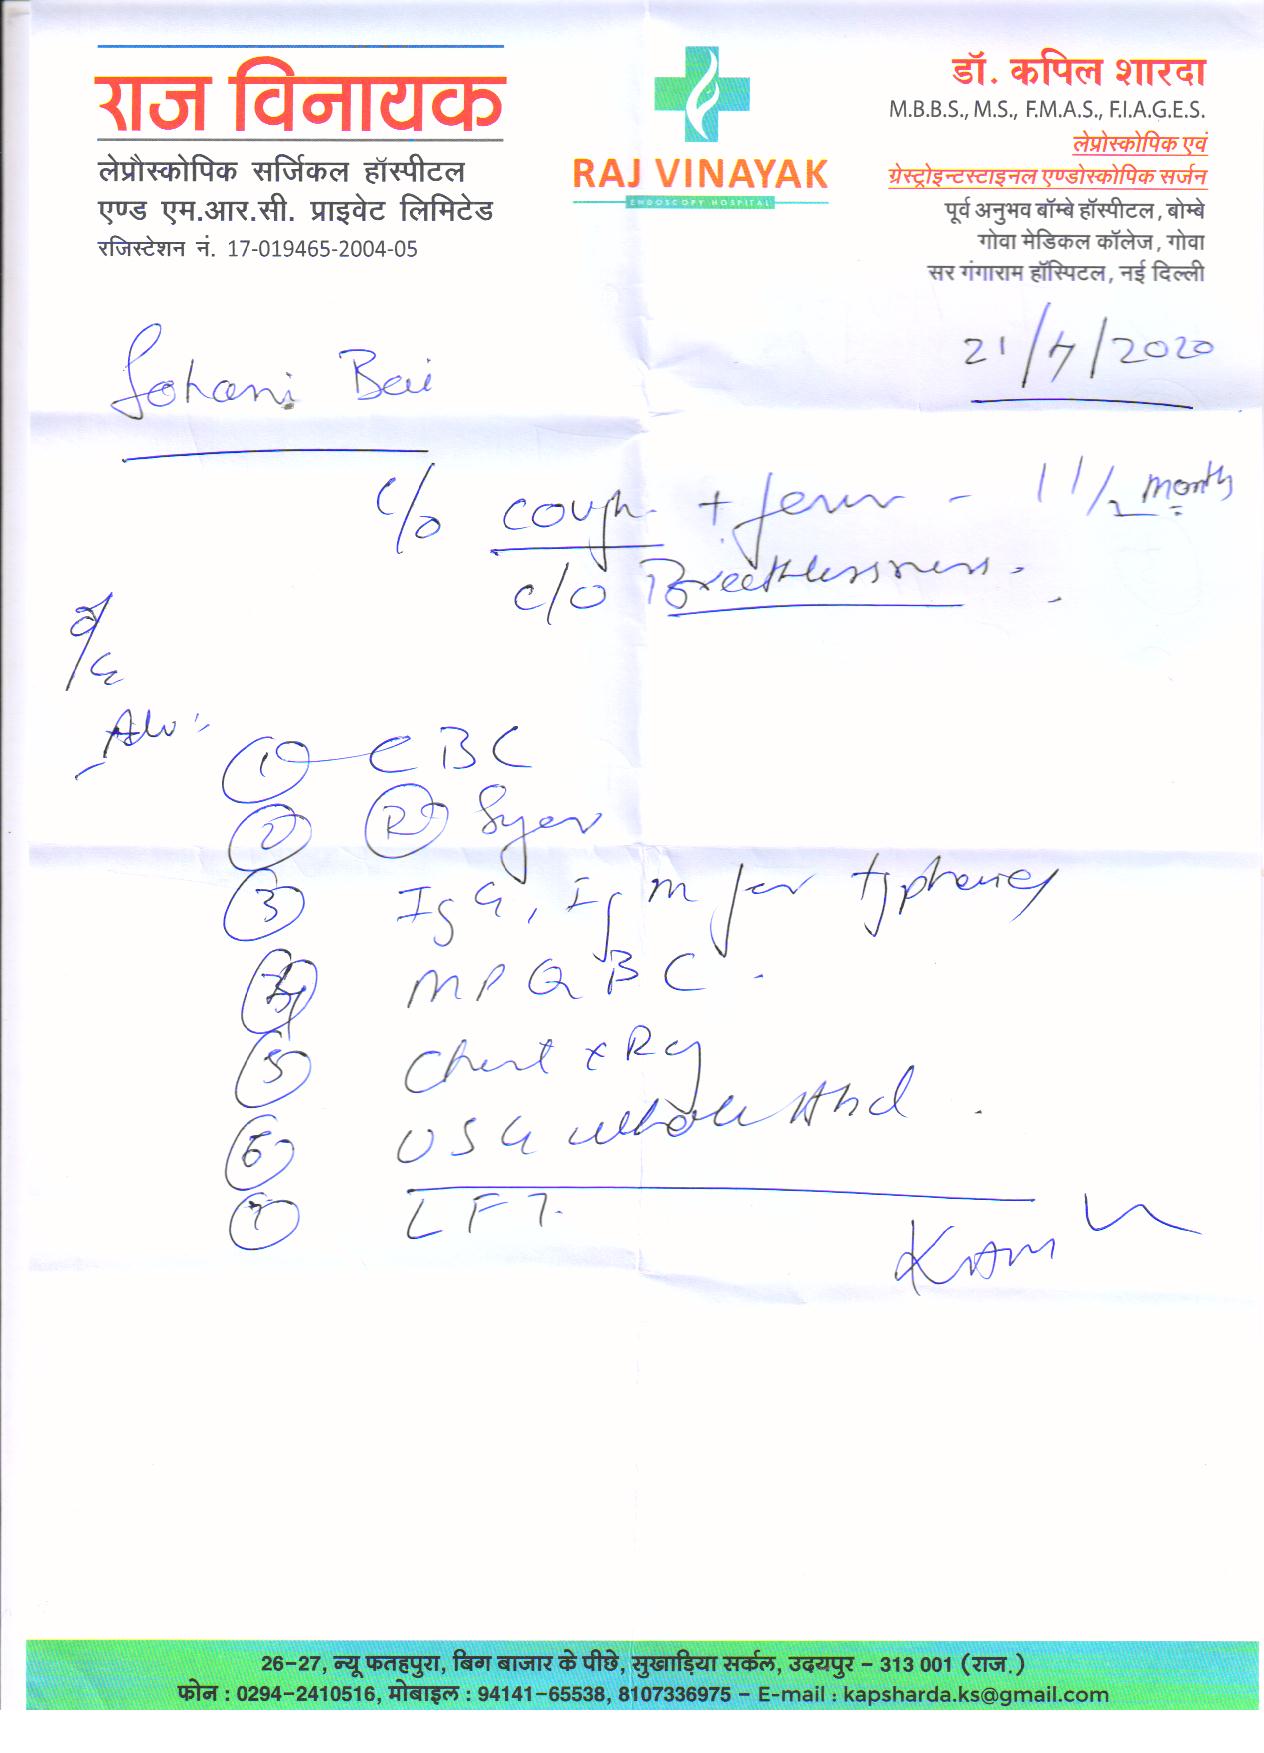 राज विनायक
लेप्रौस्कोपिक सर्जिकल हॉस्पीटल
एण्ड एम.आर.सी. प्राइवेट लिमिटेड
रजिस्टेशन नं. 17-019465-2004-05
RAJ VINAYAK
ENDOSCOPY HOSPITAL
डॉ. कपिल शारदा
M.B.B.S., M.S., F.M.A.S., F.I.A.G.E.S.
लेप्रोस्कोपिक एवं
ग्रेस्ट्रोइन्टस्टाइनल एण्डोस्कोपिक सर्जन
पूर्व अनुभव बॉम्बे हॉस्पीटल, बोम्बे
गोवा मेडिकल कॉलेज, गोवा
सर गंगाराम हॉस्पिटल, नई दिल्ली
21/7/2020
Sohani Bai
c/o cough + fever - 1 1/2 month
c/o Breathlessness.
o/e
Adv:
1 CBC
2 R Sugar
3 IgG, IgM for
4 MP QBC
5 Chest x Ray
6 USG whole Abd.
7 LFT.
26-27, न्यू फतहपुरा, बिग बाजार के पीछे, सुखाड़िया सर्कल, उदयपुर - 313 001 (राज.)
फोन : 0294-2410516, मोबाइल : 94141-65538, 8107336975 - E-mail : kapsharda.ks@gmail.com